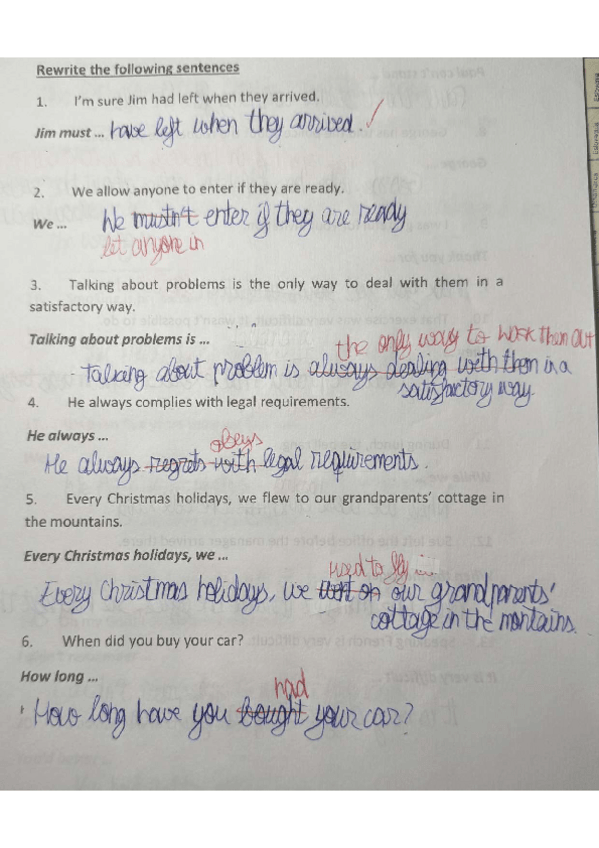 Rewrite the following sentences
1. I'm sure Jim had left when they arrived.
Jim must ... have left when they arrived. ✓
2. We allow anyone to enter if they are ready.
We ... We mustn't enter if they are ready
let anyone in
3. Talking about problems is the only way to deal with them in a
satisfactory way.
Talking about problems is ...
the only way to work them out
- Talking about problem is always dealing with them in a
satisfactory way.
4. He always complies with legal requirements.
He always ...
obeys
He always regrets with legal requirements.
5. Every Christmas holidays, we flew to our grandparents' cottage in
the mountains.
Every Christmas holidays, we ...
used to fly ...
Every Christmas holidays, we on our grandparents'
cottage in the montains.
6. When did you buy your car?
How long ...
had
How long have you bought your car?